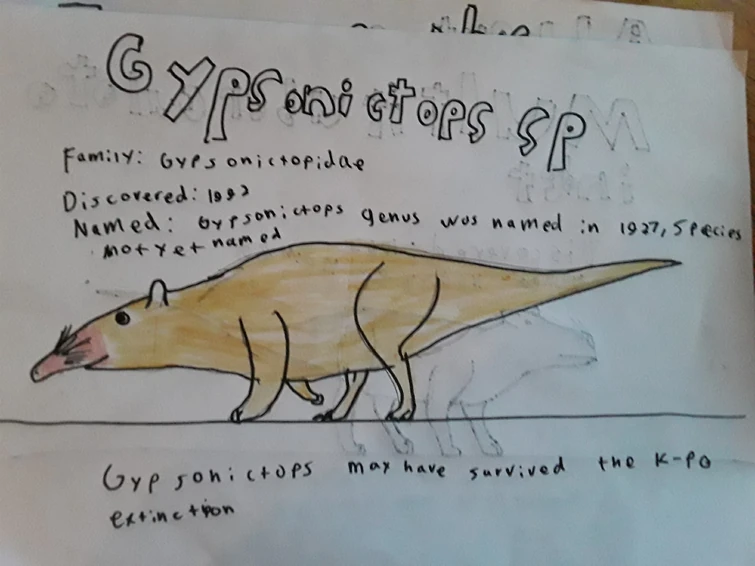 Gypsonictops sp
Family: Gypsonictopidae
Discovered: 1992
Named: Gypsonictops genus was named in 1927, Species
not yet named
Gypsonictops may have survived the K-PG
extinction